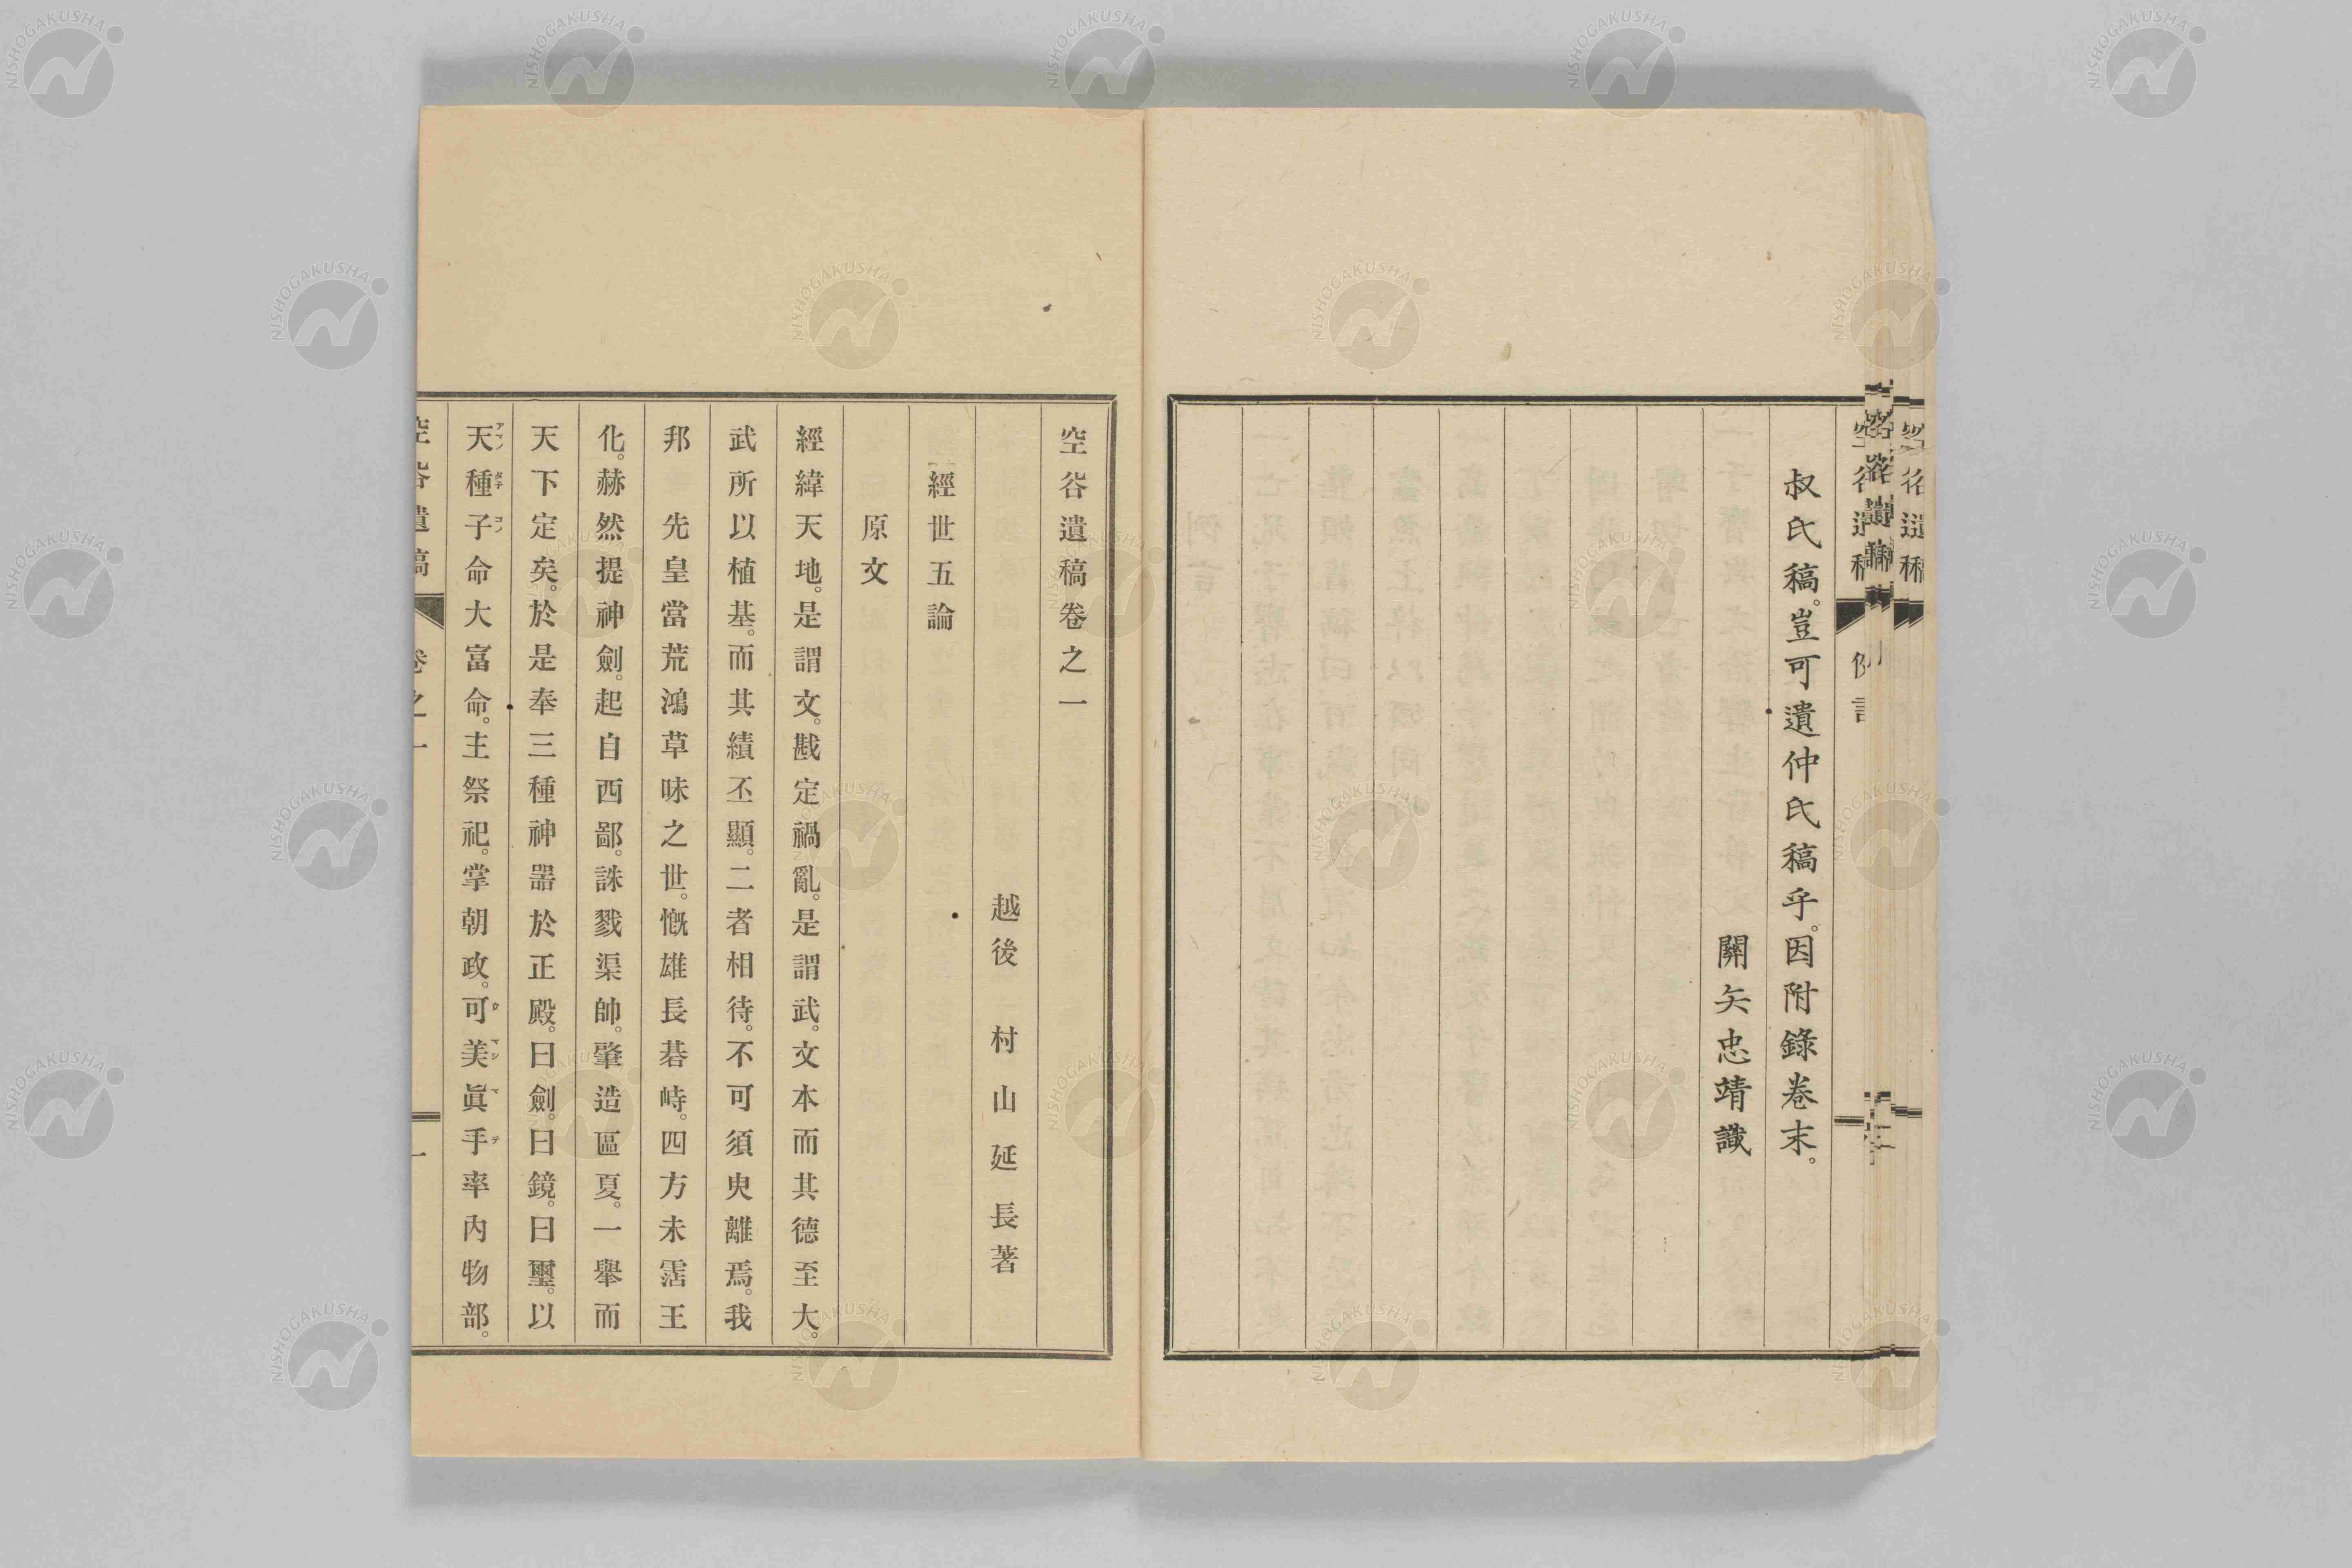 叔氏稿。豈可遺仲氏稿乎。因附錄卷末。
關矢忠靖識
空谷遺稿卷之一
越後 村山延長著
經世五論
原文
經緯天地。是謂文。戡定禍亂。是謂武。文本而其德至大。
武所以植基。而其績丕顯。二者相待。不可須臾離焉。我
邦 先皇當荒鴻草昧之世。慨雄長碁峙。四方未霑王
化。赫然提神劍。起自西鄙。誅戮渠帥。肇造區夏。一舉而
天下定矣。於是奉三種神器於正殿。曰劍。曰鏡。曰璽。以
天種子命大富命。主祭祀。掌朝政。可美眞手率內物部。
空谷遺稿 卷之一 一
NISHOGAKUSHA